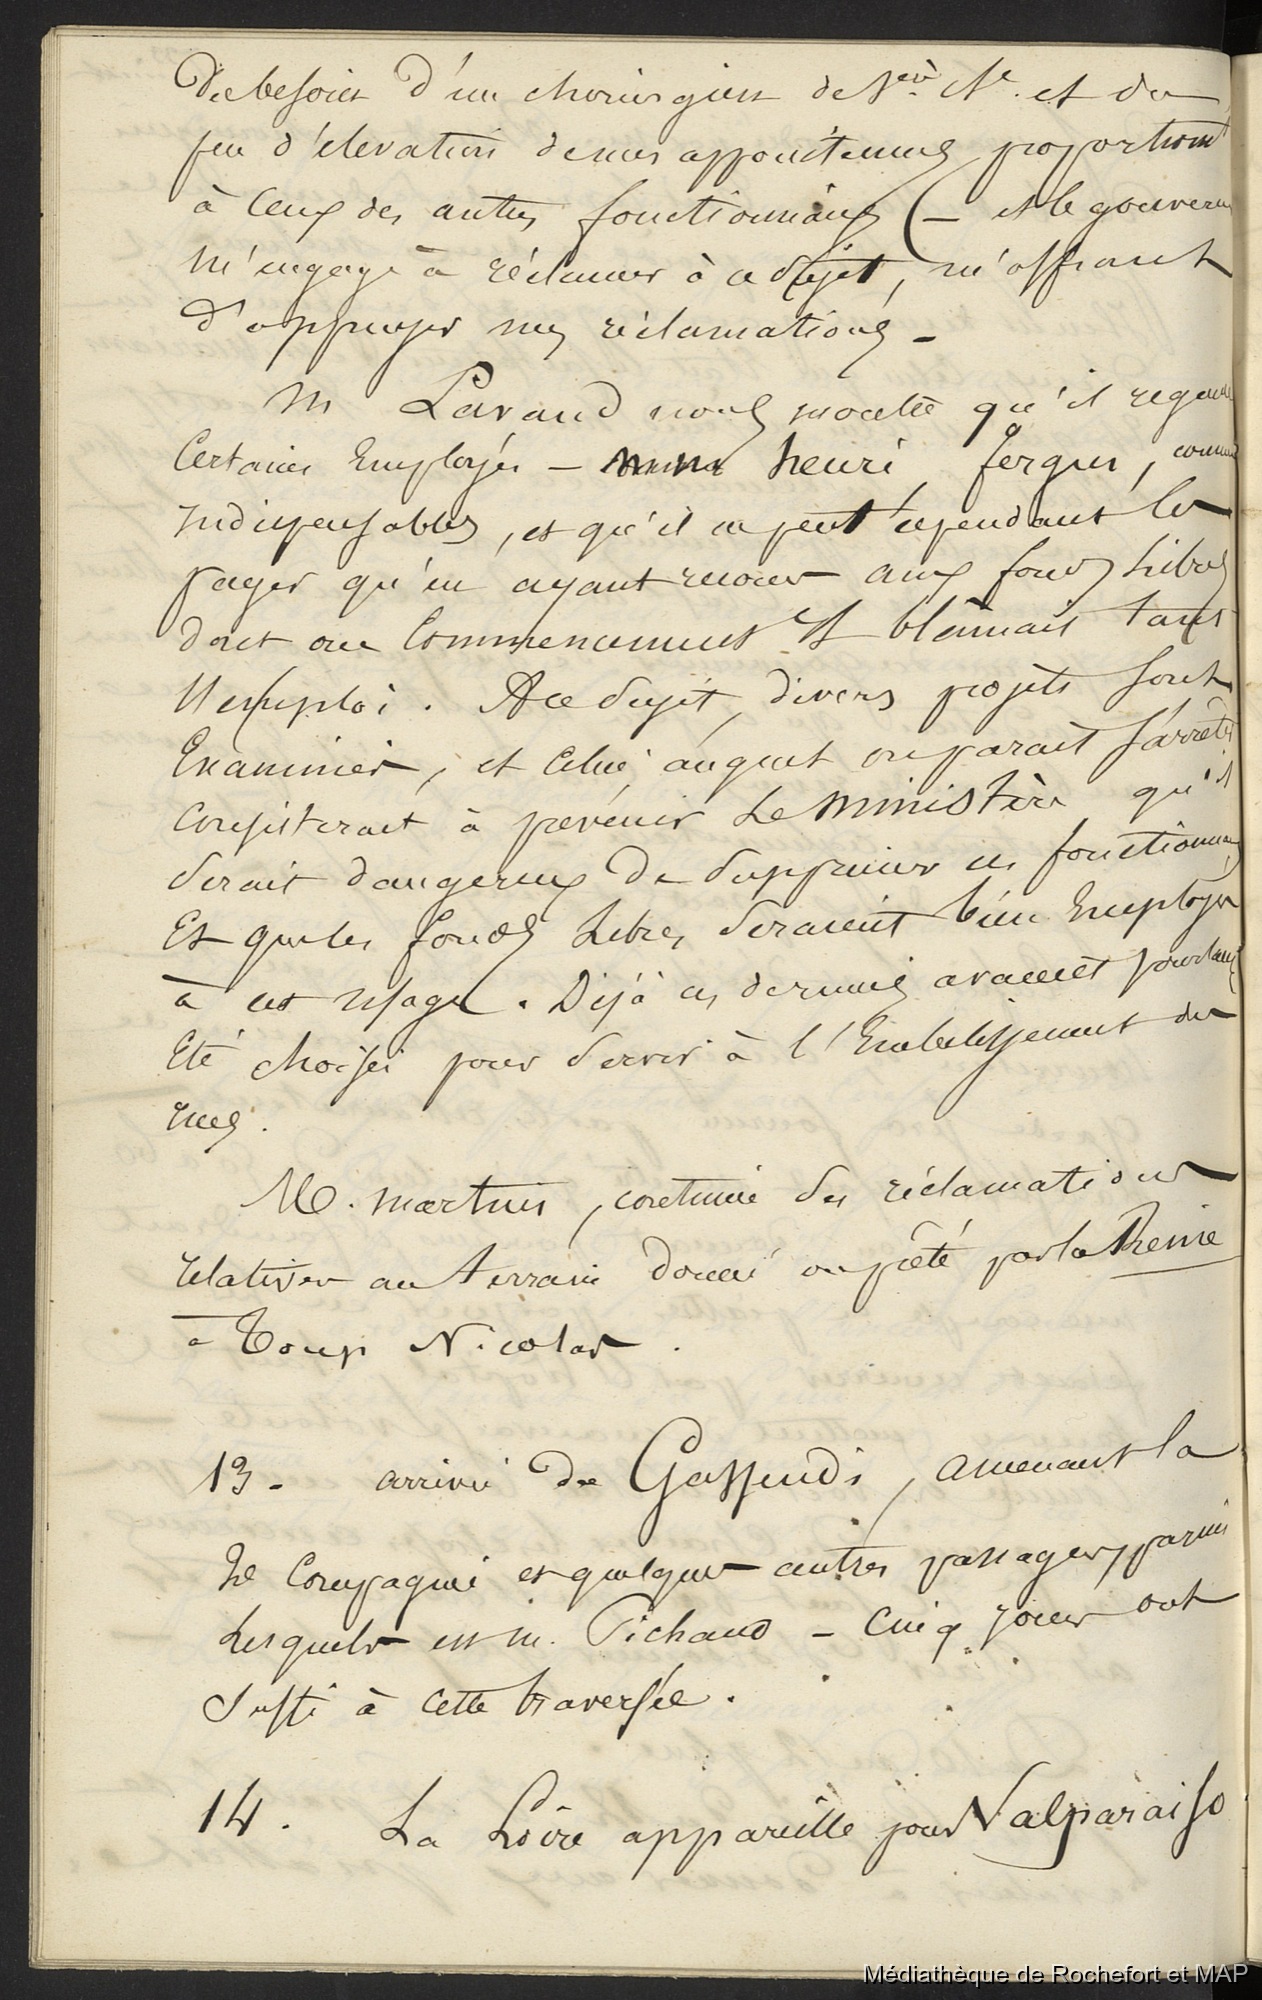 Du besoin d'un chirurgien de 1ère Cle. et du
peu d'élevation de mes appointemens proportionnt
à ceux des autres fonctionnaires (— et le gouverneur
m'engage à réclamer à ce sujet, m'offrant
d'appuyer mes réclamations —
M Lavaud nous montre qu'il regarde
Certains Employés — henri, fergus, comme
indispensables, et qu'il ne peut cependant les
payer qu'en ayant recours aux fonds libres
dont on Commencement Il blâmait tant
l'emploi. A ce sujet, divers projets sont
Examinés, et Celui auquel on parait s'arrêter
consisterait à prévenir Le Ministère qu'il
serait dangereux De Supprimer ces fonctionnaires
Et que les fonds Libres seraient bien Employés
à cet usage. Déjà ces derniers avaient pourtant
Eté choisis pour servir à l'Embelissement des
rues.
M. martins, continue des réclamations
relatives au terrain donné ou prêté par la Reine
à Toup Nicolas.
13. arrivée du Gassendi, amenant la
de Compagnie et quelques autres passagers, parmi
Lesquels est m. Pichaud — Cinq jours ont
suffi à cette traversée.
14. La Loire appareille pour Valparaiso
Médiathèque de Rochefort et MAP